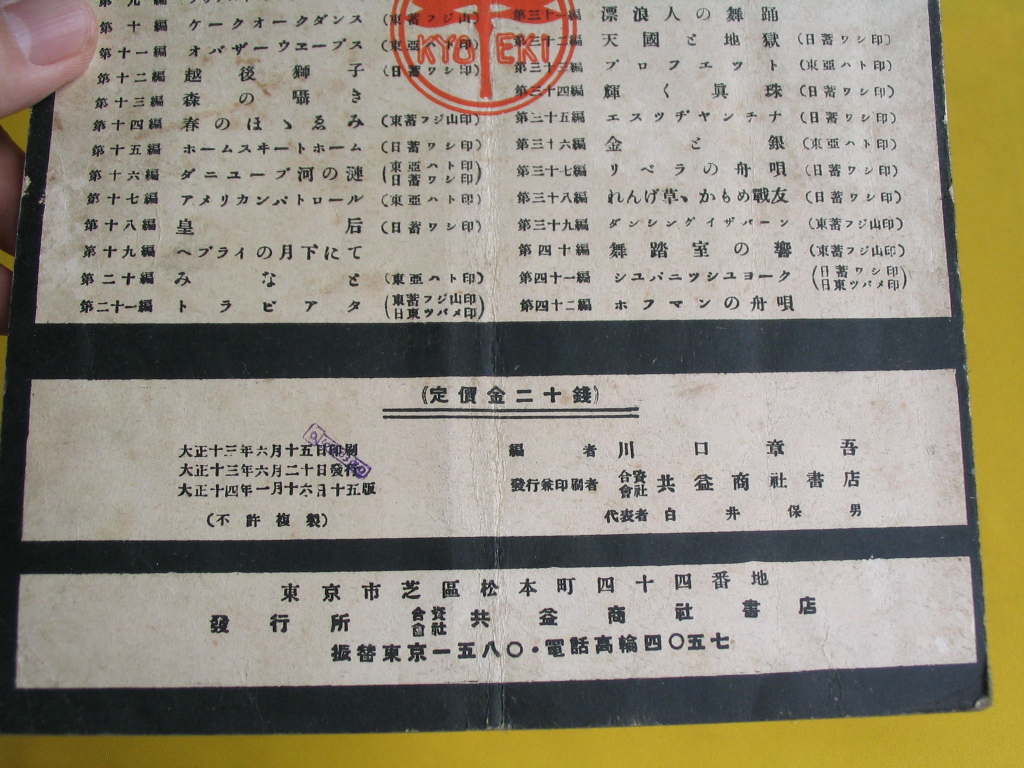 第十編 ケークオークダンス (東蓄フジ山印)
第十一編 オバザーウエーブス (東亞ハト印)
第十二編 越後獅子 (日蓄ワシ印)
第十三編 森の囁き
第十四編 春のほゝゑみ (東蓄フジ山印)
第十五編 ホームスヰートホーム (日蓄ワシ印)
第十六編 ダニユーブ河の漣 (東亞ハト印 日蓄ワシ印)
第十七編 アメリカンパトロール (東亞ハト印)
第十八編 皇后 (日蓄ワシ印)
第十九編 ヘブライの月下にて
第二十編 みなと (東亞ハト印)
第二十一編 トラビアタ (東蓄フジ山印 日東ツバメ印)
KYOEKI
第三十一編 漂浪人の舞踊
第三十二編 天國と地獄 (日蓄ワシ印)
第三十三編 プロフエット (東亞ハト印)
第三十四編 輝く眞珠 (日蓄ワシ印)
第三十五編 エスツヂヤンチナ (日蓄ワシ印)
第三十六編 金と銀 (東亞ハト印)
第三十七編 リベラの舟唄 (日蓄ワシ印)
第三十八編 れんげ草、かもめ戰友 (日蓄ワシ印)
第三十九編 ダンシングイザバーン (東蓄フジ山印)
第四十編 舞踏室の響 (東蓄フジ山印)
第四十一編 シユバニツシユヨーク (日蓄ワシ印 日東ツバメ印)
第四十二編 ホフマンの舟唄
(定價金二十錢)
大正十三年六月十五日印刷
大正十三年六月二十日發行
大正十四年一月十六日十五版
(不許複製)
編者 川口章吾
發行兼印刷者 合資會社 共益商社書店
代表者 白井保男
東京市芝區松本町四十四番地
發行所 合資會社 共益商社書店
振替東京一五八〇・電話高輪四〇五七